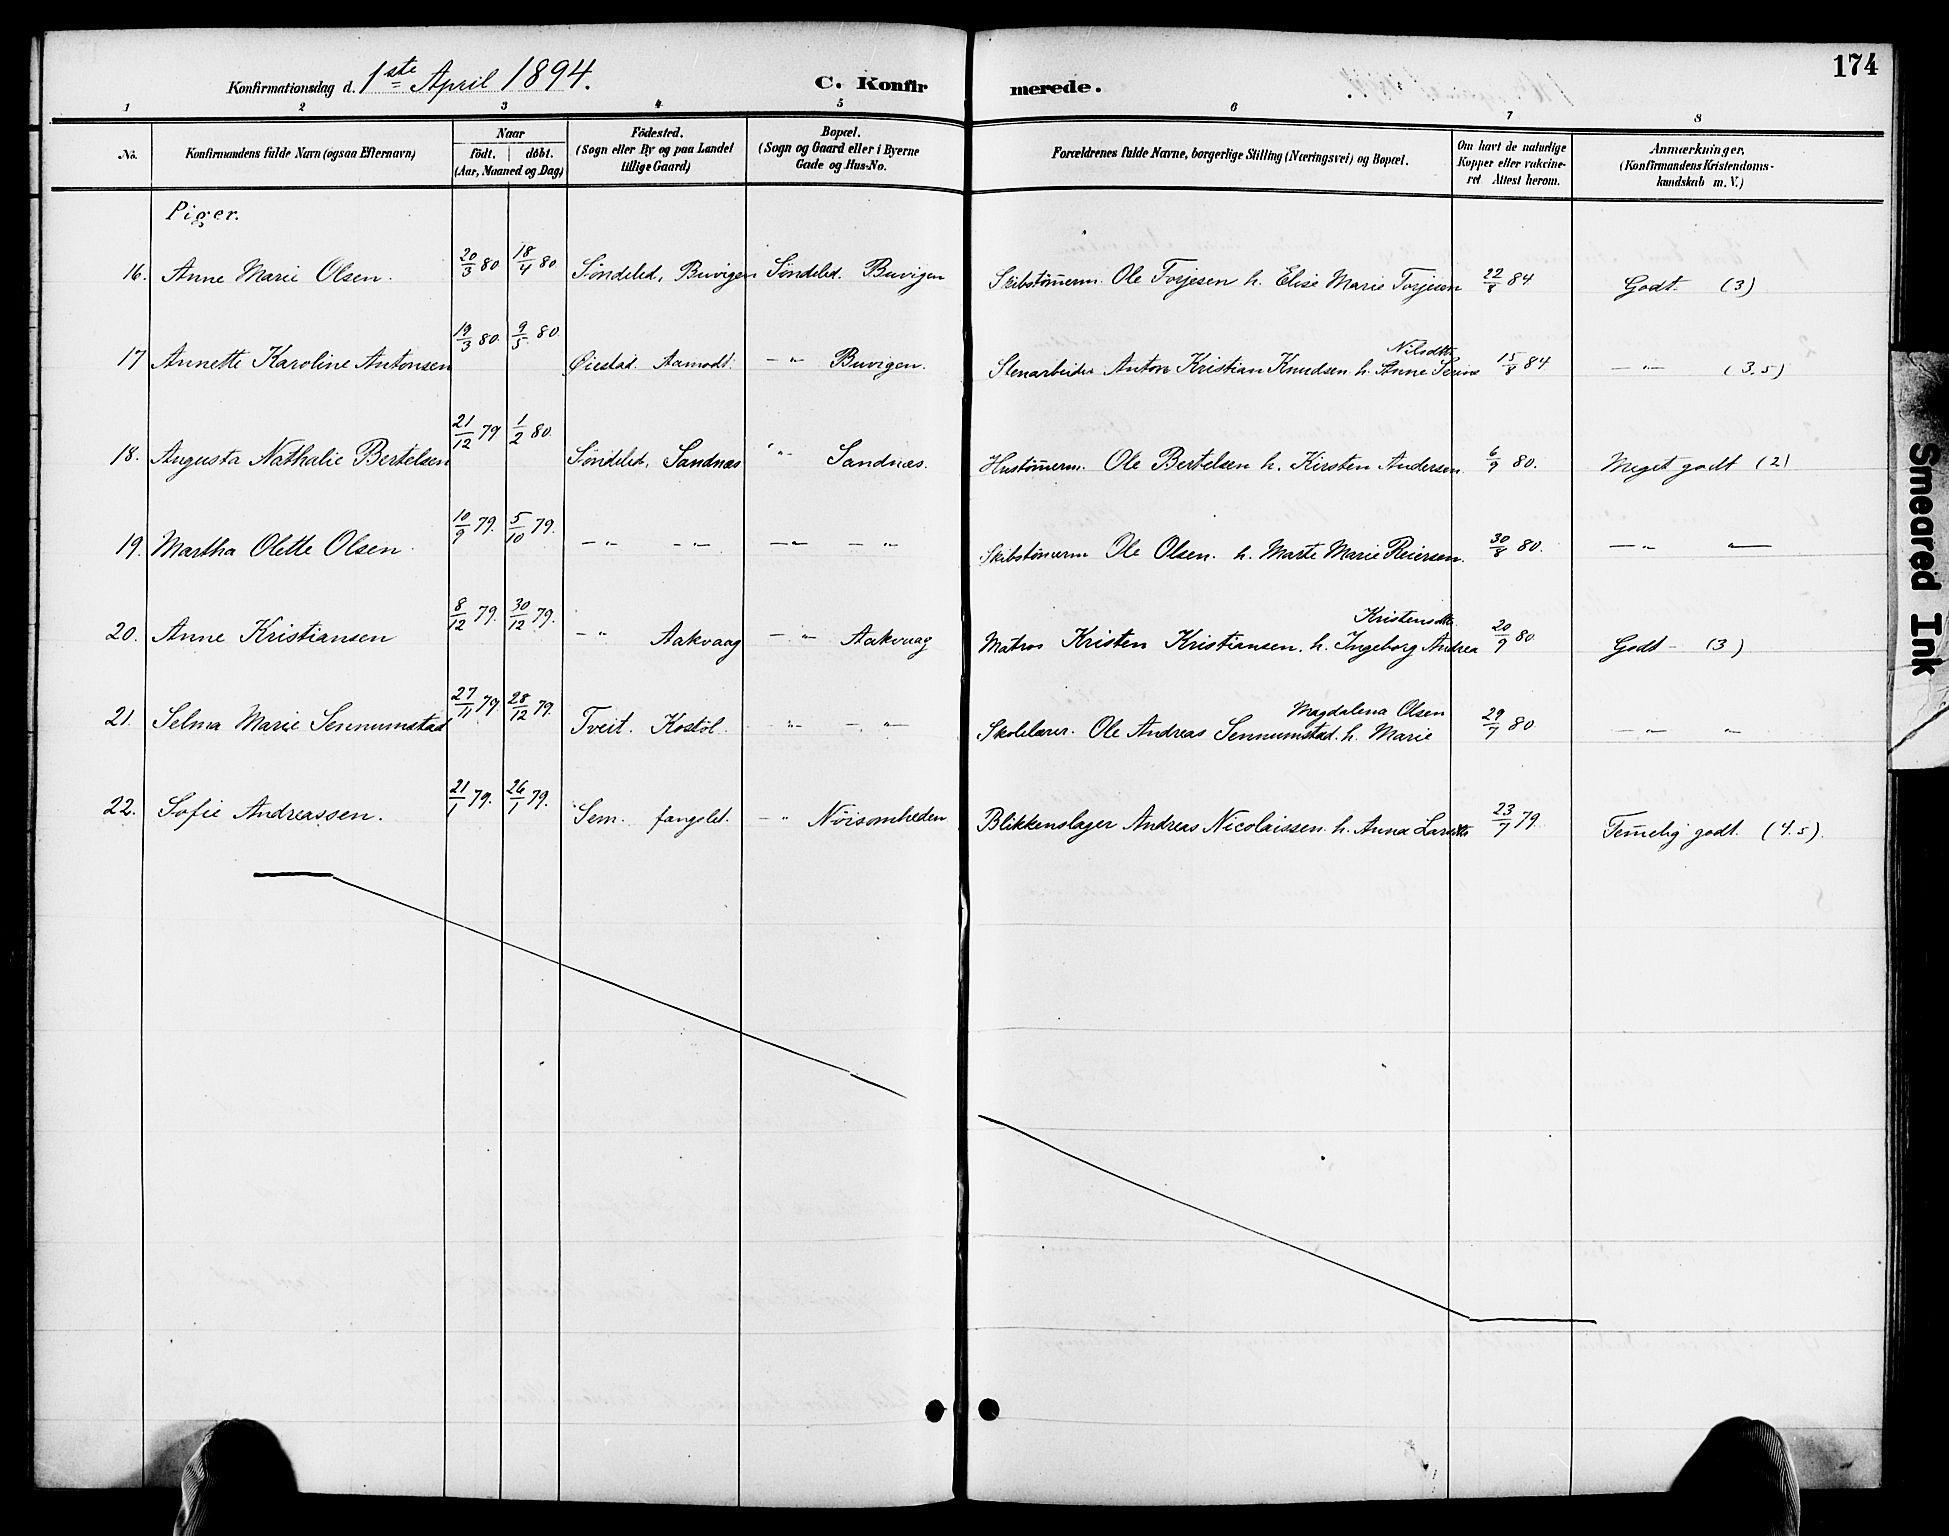 174
Konfirmationsdag d. 1ste April 1894. C. Konfirmerede.
1 2 3 4 5 6 7 8
No. Konfirmandens fulde Navn (ogsaa Efternavn) Naar födt. döbt. (Aar, Maaned og Dag) Födested. (Sogn eller By og paa Landet tillige Gaard) Bopæl. (Sogn og Gaard eller i Byerne Gade og Hus-No. Forældrenes fulde Navne, borgerlige Stilling (Næringsvei) og Bopæl. Om havt de naturlige Kopper eller vakcineret Attest herom. Anmærkninger, (Konfirmandens Kristendomskundskab m. V.)
Piger.
16. Anne Marie Olsen. 20/3 80 18/4 80 Söndeled, Buvigen Söndeled. Buvigen Skibstömerm. Ole Torjesen h. Elise Marie Torjesen 22/8 84 Godt. (3)
17 Annette Karoline Antonsen 19/3 80. 9/5 80 Øiestad. Aamodt. —"— Buvigen. Stenarbeider Anton Kristian Knudsen h. Anne Serine Nilsdtr. 15/8 84 —"— (3.5)
18. Augusta Nathalie Bertelsen 21/12 79 1/2 80. Söndeled, Sandnæs "— Sandnæs. Hustömerm. Ole Bertelsen h. Kirsten Andersen. 6/9 80. Meget godt (2)
19. Martha Olette Olsen. 10/9 79. 5/10 79. —"— —"— —"— —"— Skibstömerm Ole Olsen. h. Marte Marie Reiersen. 30/8 80. —"— "—
20. Anne Kristiansen 8/12 79. 30/12 79. —"— Aakvaag —"— Aakvaag Matros Kristen Kristiansen. h. Ingeborg Andrea Kristensdtr. 20/9 80 Godt — (3)
21. Selma Marie Sennumstad 27/11 79 28/12 79. Tveit. Kostöl. —"— —"— Skolelærer. Ole Andreas Sennumstad. h. Marie Magdalena Olsen 29/7 80 —"— "—
22. Sofie Andreassen. 21/1 79. 26/1 79. Sem. fangslet. —"— Nöisomheden Blikkenslager Andreas Nicolaissen. h. Anna Larsdtr 23/7 79 Temelig godt. (4.5).
Smeared Ink